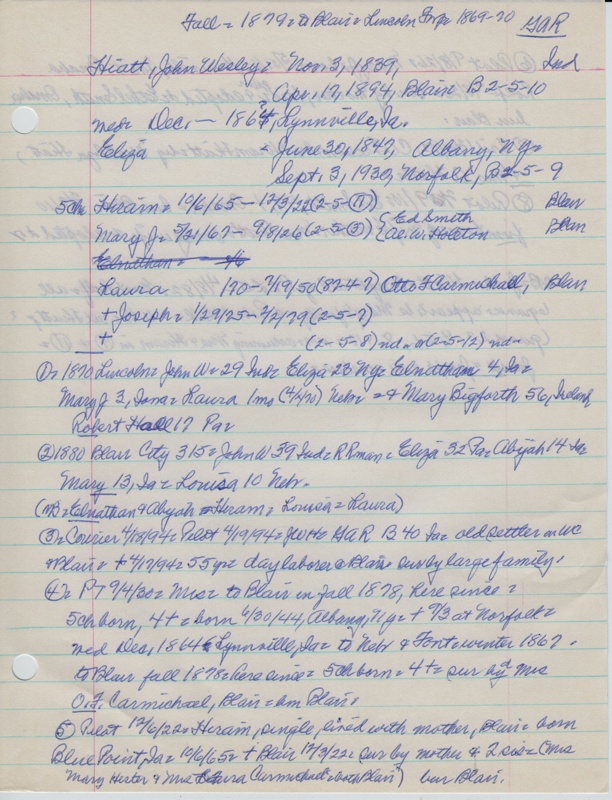 Fall = 1879 = to Blair = Lincoln Twp = 1869-70 GAR
Hiatt, John Wesley = Nov. 3, 1839, Ind
Apr. 17, 1894, Blair B 2-5-10
med = Dec. — 1864, Lynnville, Ia.
Eliza = June 30, 1847, Albany, Ny =
Sept. 3, 1930, Norfolk, B2-5-9
5ch Hiram = 10/6/65 - 12/3/22 (2-5-11) Blair
Mary J = 5/21/67 - 9/8/26 (2-5-3) {Ed Smith Blair
{ W. Holeton
Elnathan =
Laura 1/70 - 7/19/50 (87-4-7) Otto F Carmichael, Blair
+ Joseph = 1/29/75 - 2/2/79 (2-5-7)
+ (2-5-8) nd. or (2-5-12) nd-
① = 1870 Lincoln = John W = 29 Ind = Eliza 23 Ny = Elnathan 4, Ia =
Mary J 3, Iowa = Laura 1mo (4/4/70) Nebr = & Mary Bigforth 56, Ireland,
Robert Hall 17 Pa =
② 1880 Blair City 315 = John W 39 Ind = RRman = Eliza 32 Pa = Abijah 14 Ia
Mary 13, Ia = Louisa 10 Nebr.
(NB = Elnathan & Abijah = Hiram = Louisa = Laura)
③ = Courier 4/18/94 = Pilot 4/19/94 = JWH GAR B 40 Ia = old settler in WC
& Blair = + 4/17/94 = 55yr = day laborer @ Blair = sur by large family.
④ = PT 9/4/30 = Mrs = to Blair in fall 1878, here since =
5ch born, 4+ = born 6/30/44, Albany, Ny = + 9/3 at Norfolk =
med Dec, 1864 Lynnville, Ia = to Nebr & Font = winter 1867.
to Blair fall 1878 = here since = 5ch born = 4+ = sur by d Mrs
O.F. Carmichael, Blair = bm Blair.
⑤ Pilot 12/6/22 = Hiram, single, lived with mother, Blair = born
Blue Point, Ia = 10/6/65 = + Blair 12/3/22 = sur by mother & 2 sis = (Mrs
Mary Hester & Mrs Laura Carmichael = both Blair) bur Blair.